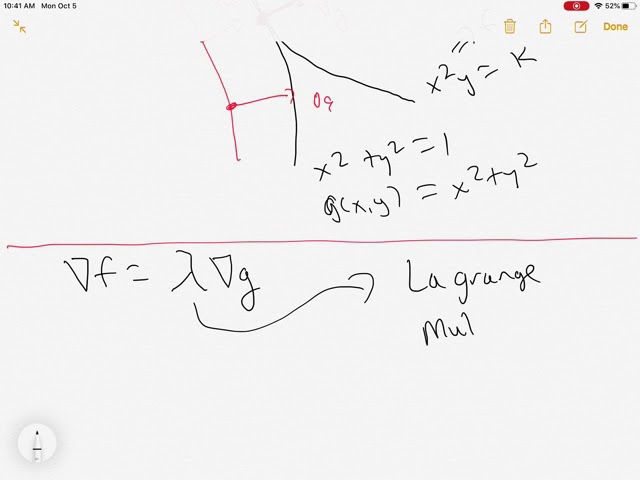 10:41 AM Mon Oct 5
52%
Done
x²y = K
∇g
x² + y² = 1
g(x,y) = x² + y²
∇f = λ∇g
Lagrange
Mul